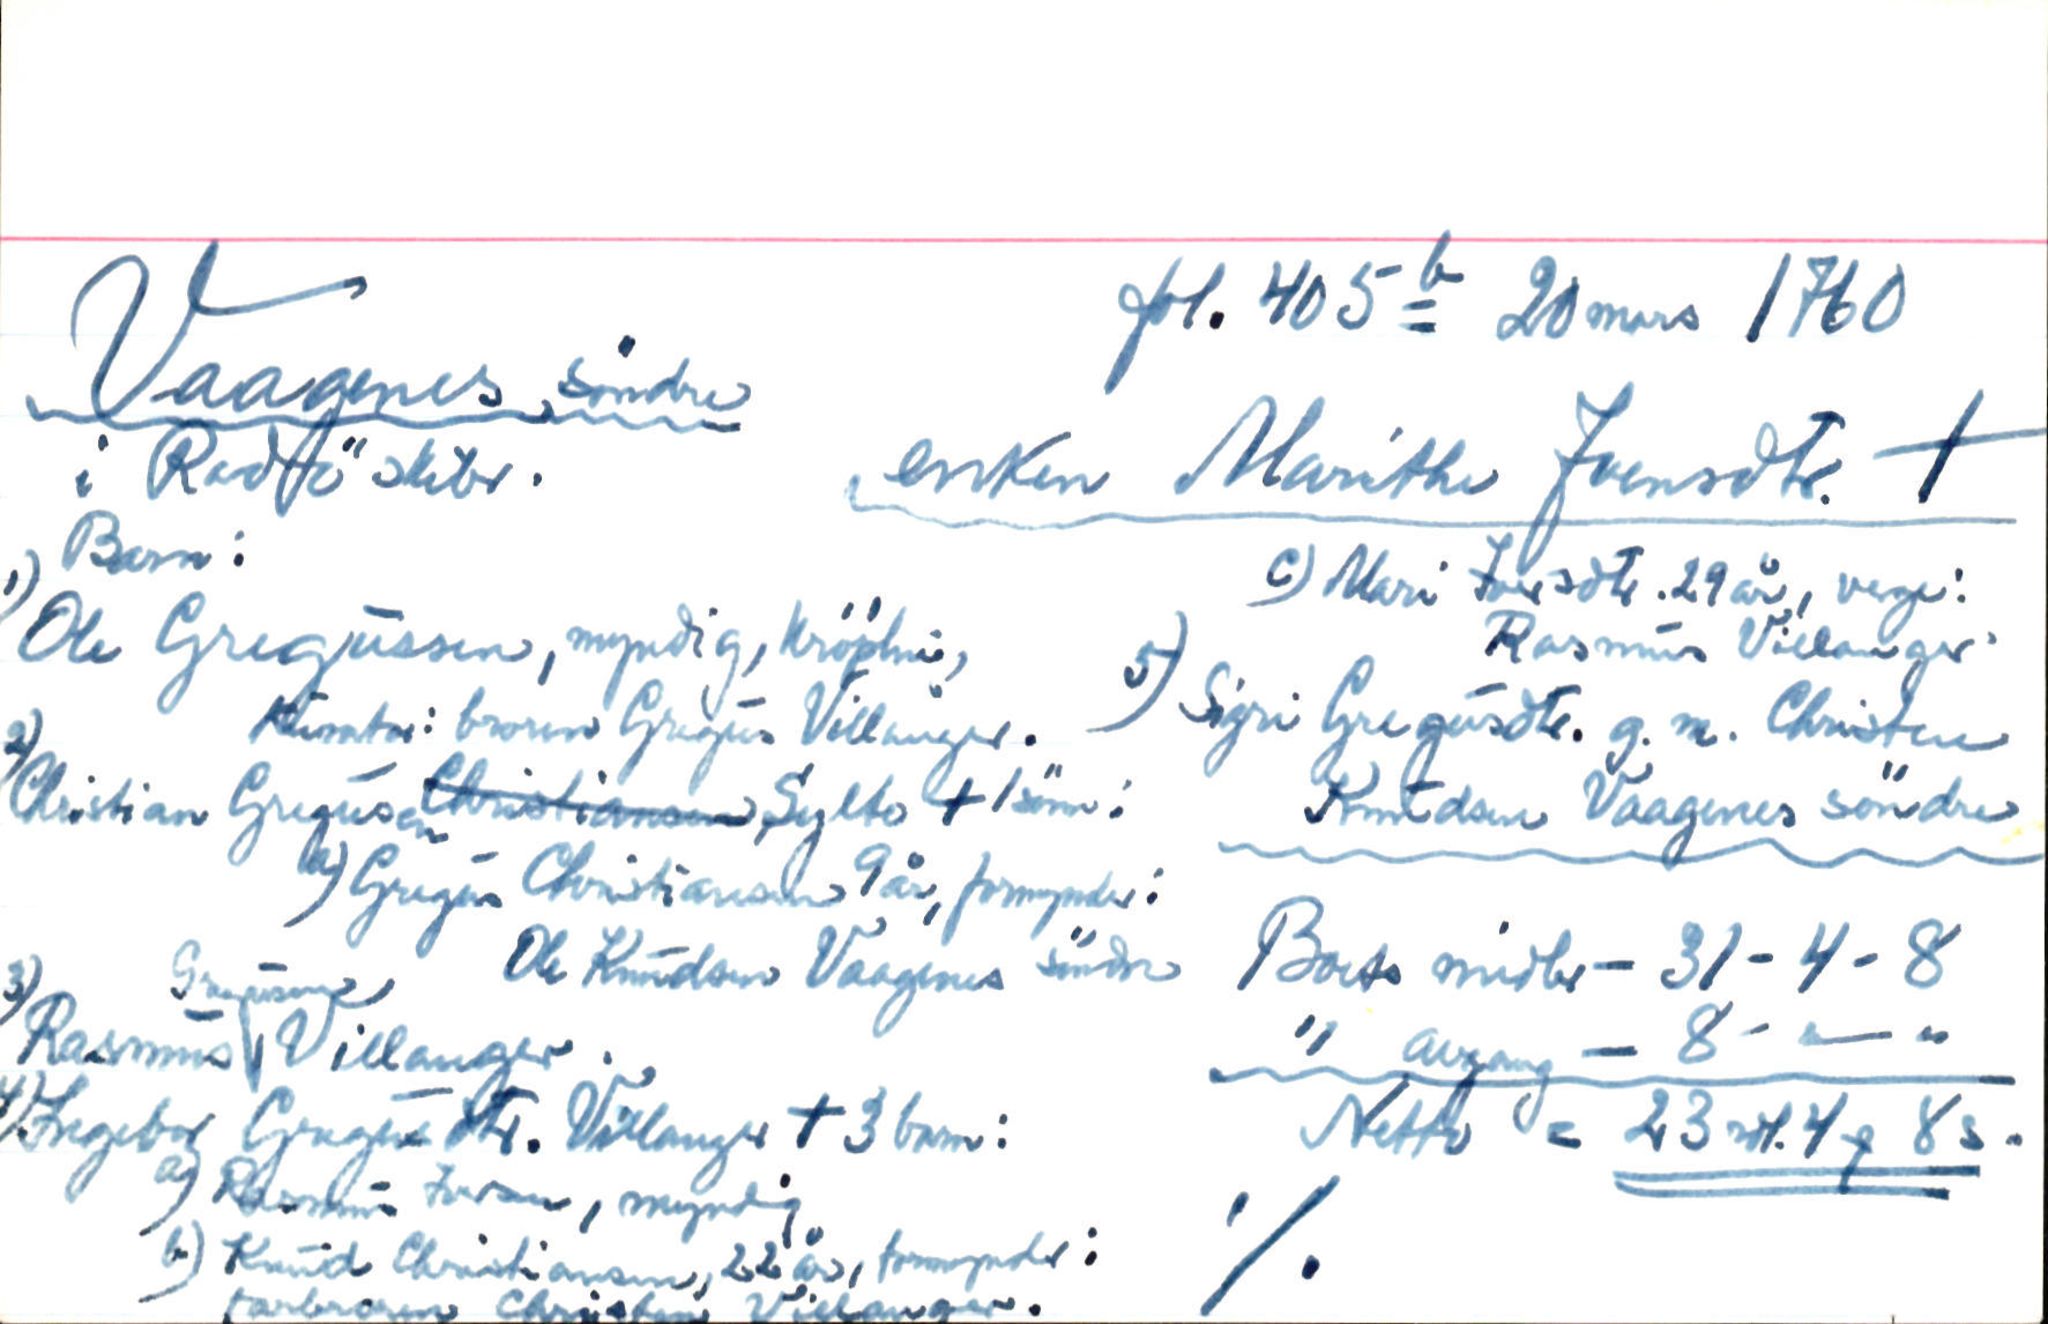 fol. 405 b 20 mars 1760
Vaagenes söndre
i Radöskibr.
enken Marithe Joensdtr. +
Barn:
1) Ole Gregussen, myndig, kröpling,
Kurator: broren Gregus Villanger.
2) Christian Gregusen Sylte + 1 sönn:
a) Gregus Christiansen 9 år, formynder:
Ole Knudsen Vaagenes söndre
3) Rasmus Gregusen Villanger.
4) Ingebor Gregusdtr. Villanger + 3 barn:
a) Rasmus Iversen, myndig
b) Knud Christiansen, 22 år, formynder:
farbroren Christen Villanger.
c) Mari Iversdtr. 29 år, verge:
Rasmus Villanger.
5) Sigri Gregusdtr. g. m. Christen
Knudsen Vaagenes söndre
Boets midler - 31 - 4 - 8
" avgang - 8 - " - "
Netto = 23 rdl. 4 8 s.
./.